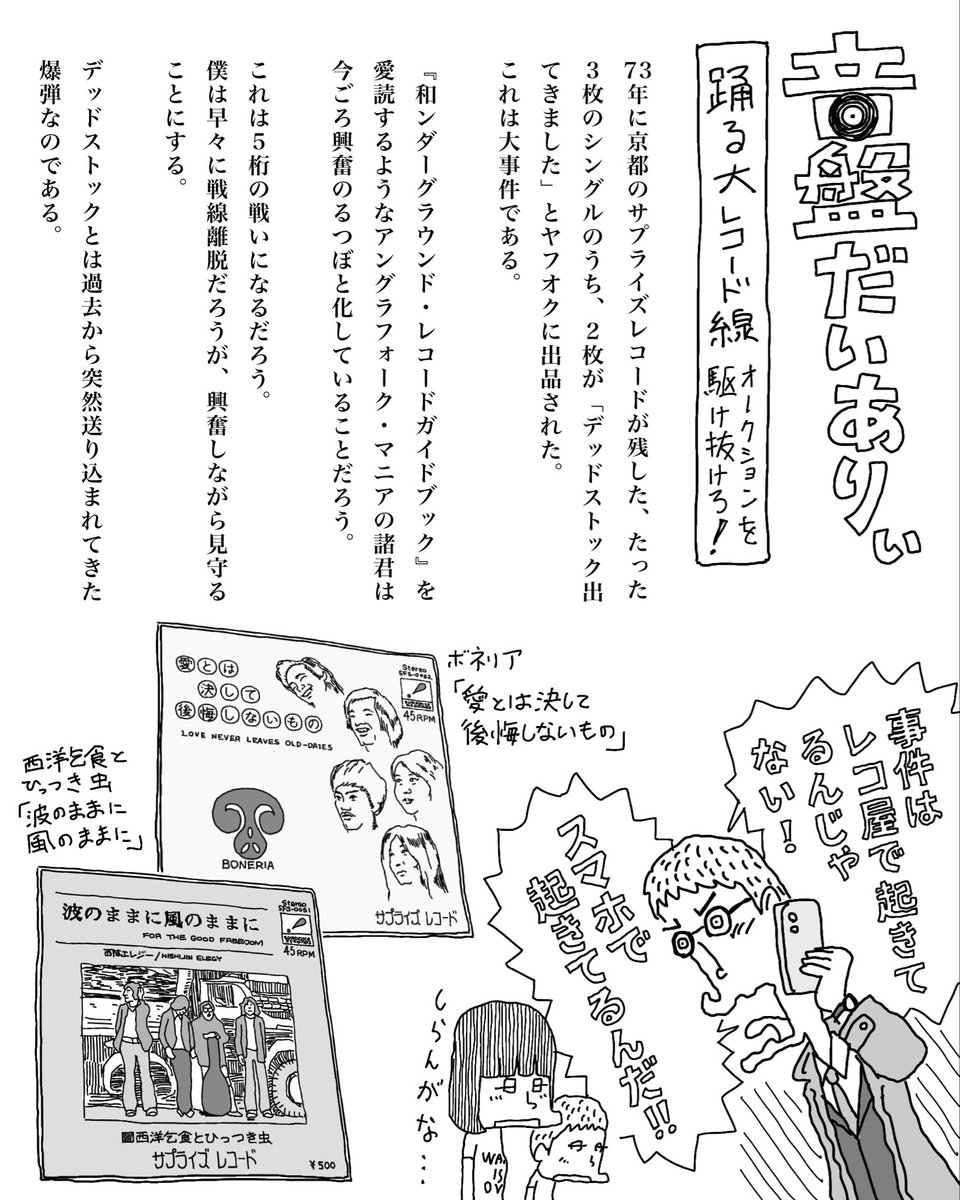 音盤だいありぃ
踊る大レコード線
オークションを
駆け抜けろ!
73年に京都のサプライズレコードが残した、たった
3枚のシングルのうち、2枚が「デッドストック出
てきました」とヤフオクに出品された。
これは大事件である。
『和ンダーグラウンド・レコードガイドブック』を
愛読するようなアングラフォーク・マニアの諸君は
今ごろ興奮のるつぼと化していることだろう。
これは5桁の戦いになるだろう。
僕は早々に戦線離脱だろうが、興奮しながら見守る
ことにする。
デッドストックとは過去から突然送り込まれてきた
爆弾なのである。
ボネリア
「愛とは決して
後悔しないもの」
愛とは
決して
後悔しないもの
LOVE NEVER LEAVES OLD-DAIES
Stereo
SFS-0052
45RPM
BONERIA
サプライズ レコード
西洋乞食と
ひっつき虫
「波のままに
風のままに」
波のままに風のままに
FOR THE GOOD FREEDOM
西陣エレジー/NISHIJIN ELEGY
Stereo
SFS-0051
45RPM
西洋乞食とひっつき虫
サプライズ レコード
¥500
事件は
レコ屋で起きて
るんじゃ
ない!
スマホで
起きてるんだ!!
しらんがな…
WA
IS
OV